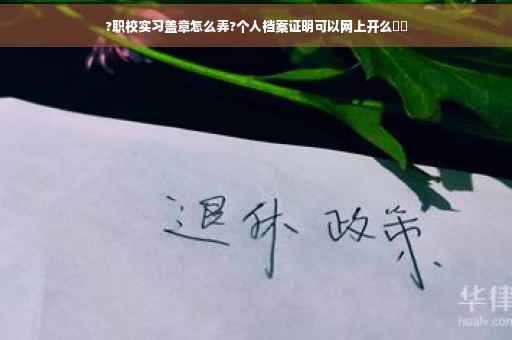 ?职校实习盖章怎么弄?个人档案证明可以网上开么
退休政策
华律
hualv.com